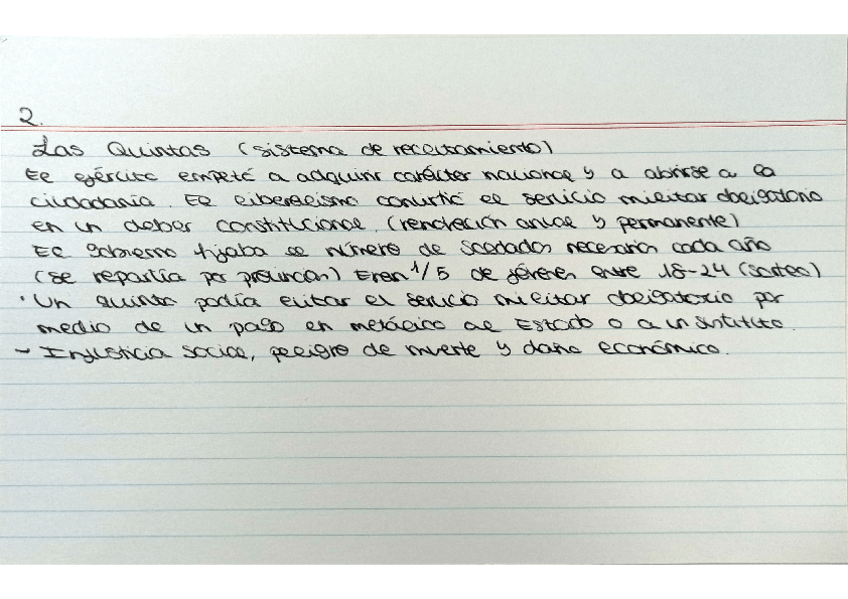 2.
Las Quintas (sistema de reclutamiento)
El ejército empezó a adquirir carácter nacional y a abrirse a la
ciudadanía. El liberalismo convirtió el servicio militar obligatorio
en un deber constitucional. (renovación anual y permanente)
El Gobierno fijaba el número de soldados necesarios cada año
(se repartía por provincias) Eran 1/5 de jóvenes entre 18-24 (sorteo)
· Un quinto podía evitar el servicio militar obligatorio por
medio de un pago en metálico al Estado o a un sustituto.
- Injusticia social, peligro de muerte y daño económico.